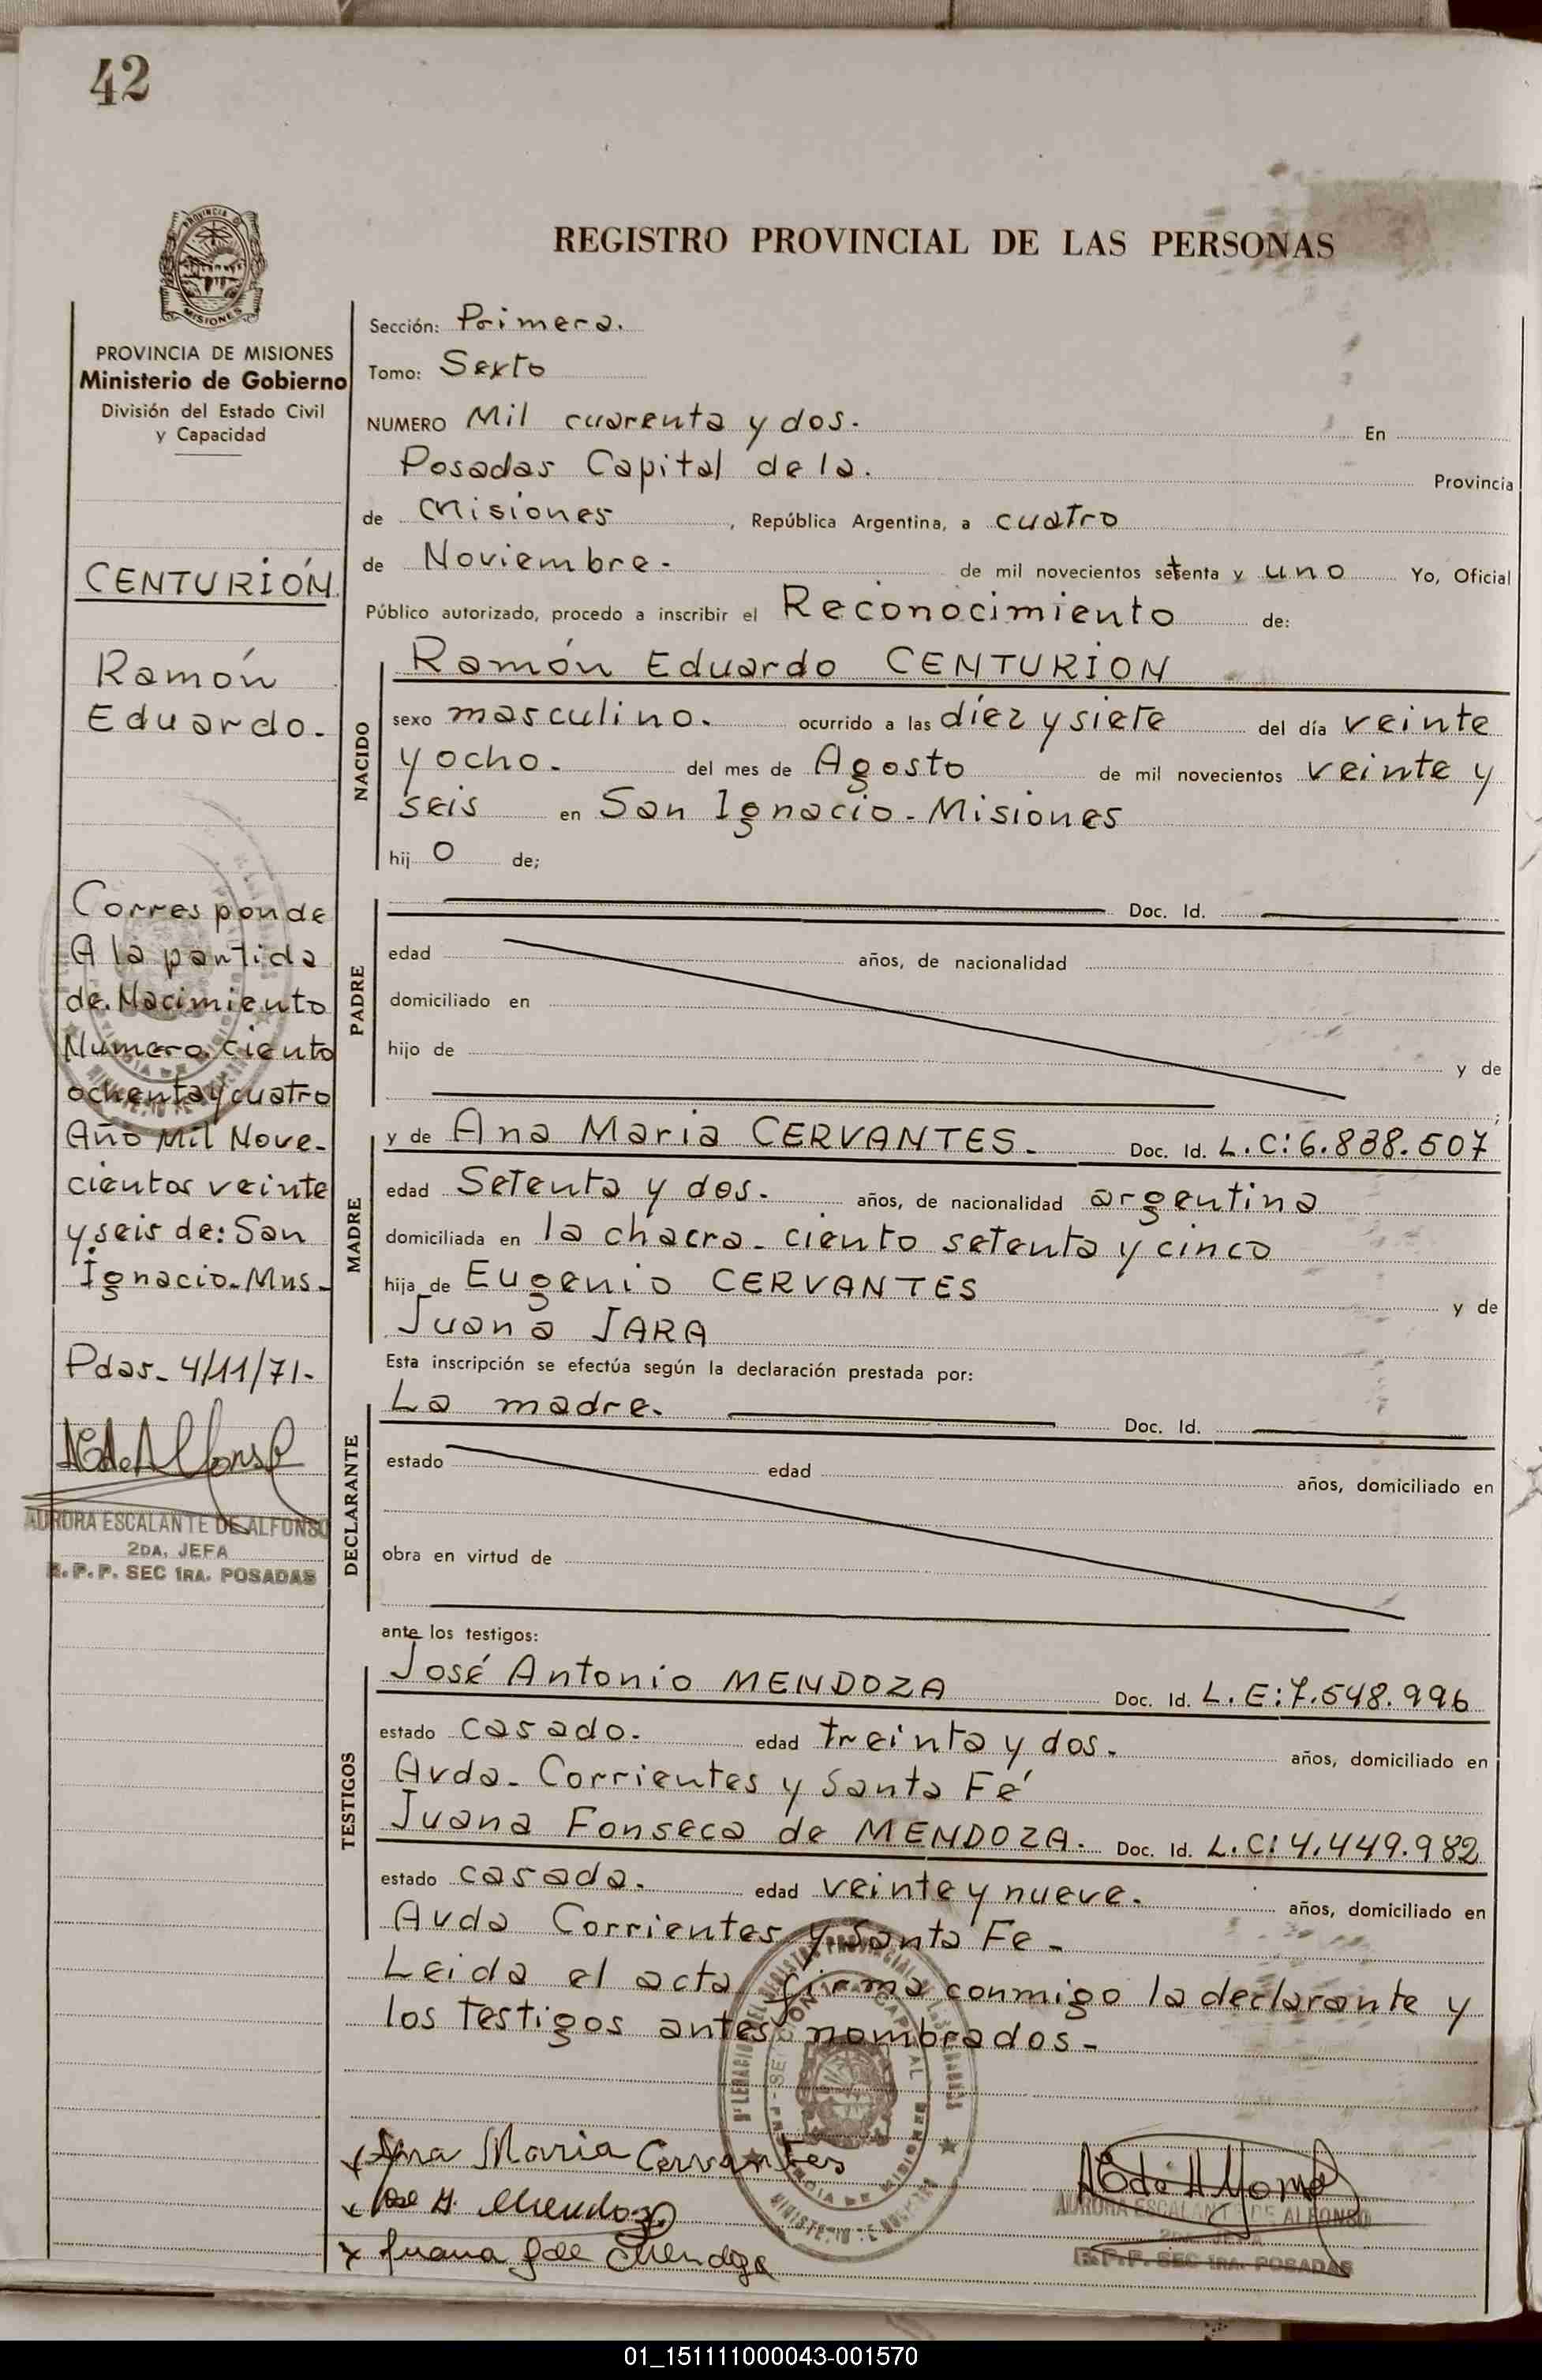 42
PROVINCIA DE MISIONES
Ministerio de Gobierno
División del Estado Civil
y Capacidad
CENTURIÓN.
Ramón
Eduardo.
Corresponde
A la partida
de Nacimiento
Numero ciento
ochenta y cuatro
Año Mil Nove-
cientos veinte
y seis de: San
Ignacio-Mns-
Pdas- 4/11/71-
AEdeAlfonso
AURORA ESCALANTE DE ALFONSO
2DA. JEFA
R.P.P. SEC 1RA. POSADAS
REGISTRO PROVINCIAL DE LAS PERSONAS
Sección: Primera.
Tomo: Sexto
NUMERO Mil cuarenta y dos. En
Posadas Capital de la. Provincia
de Misiones, República Argentina, a cuatro
de Noviembre. de mil novecientos setenta y uno Yo, Oficial
Público autorizado, procedo a inscribir el Reconocimiento de:
NACIDO
Ramón Eduardo CENTURION
sexo masculino. ocurrido a las díez y siete del día veinte
y ocho. del mes de Agosto de mil novecientos veinte y
seis en San Ignacio - Misiones
hij o de;
PADRE
Doc. Id.
edad años, de nacionalidad
domiciliado en
hijo de y de
;
MADRE
y de Ana Maria CERVANTES. Doc. Id. L.C: 6.838.507
edad Setenta y dos. años, de nacionalidad argentina
domiciliada en la chacra - ciento setenta y cinco
hija de Eugenio CERVANTES y de
Juana JARA
Esta inscripción se efectúa según la declaración prestada por:
DECLARANTE
La madre. Doc. Id.
estado edad años, domiciliado en
obra en virtud de
ante los testigos:
TESTIGOS
José Antonio MENDOZA Doc. Id. L.E: 7.548.996
estado casado. edad treinta y dos. años, domiciliado en
Avda- Corrientes y Santa Fé
Juana Fonseca de MENDOZA. Doc. Id. L.C: 4.449.982
estado casada. edad veinte y nueve. años, domiciliado en
Avda Corrientes y Santa Fe-
Leida el acta firma conmigo la declarante y
los testigos antes nombrados-
x Ana Maria Cervantes
x José A. Mendoza
x Juana F de Mendoza
AEdeAlfonso
AURORA ESCALANTE DE ALFONSO
2DA. JEFA
R.P.P. SEC 1RA. POSADAS
01_151111000043-001570